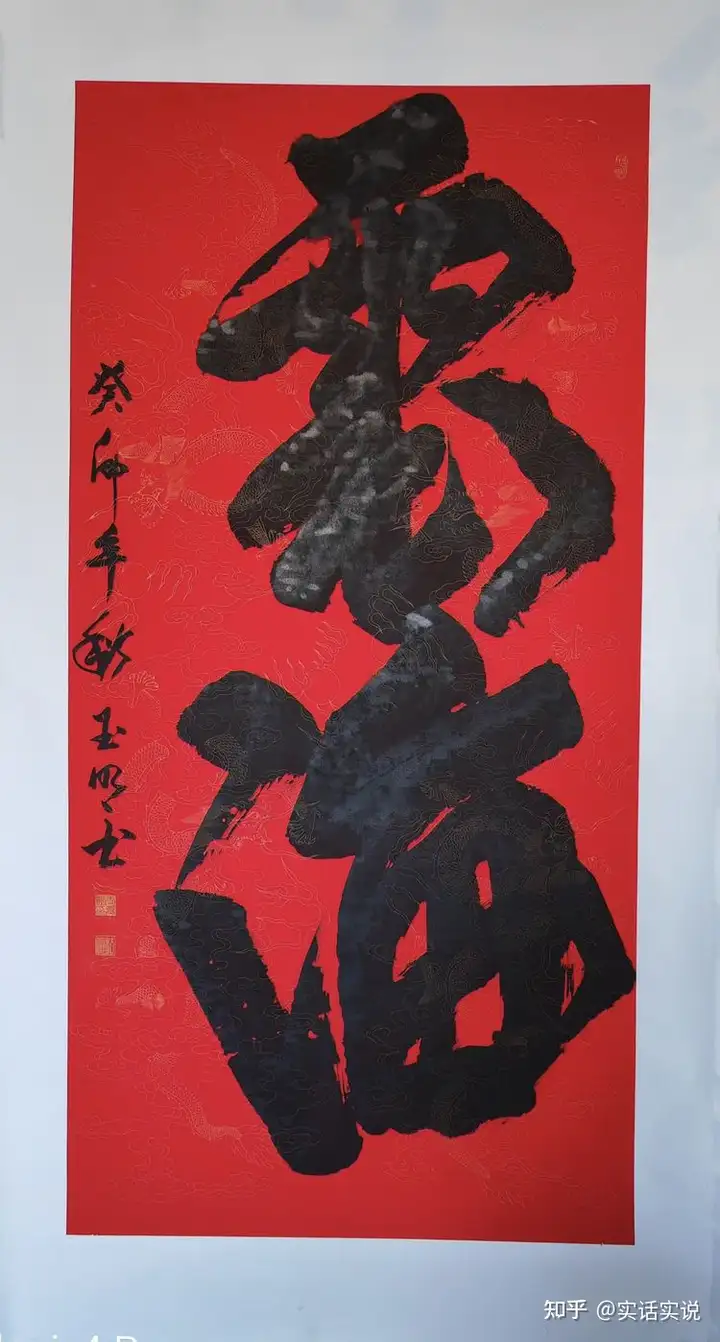 雲海
癸卯年秋玉明书
知乎 @实话实说